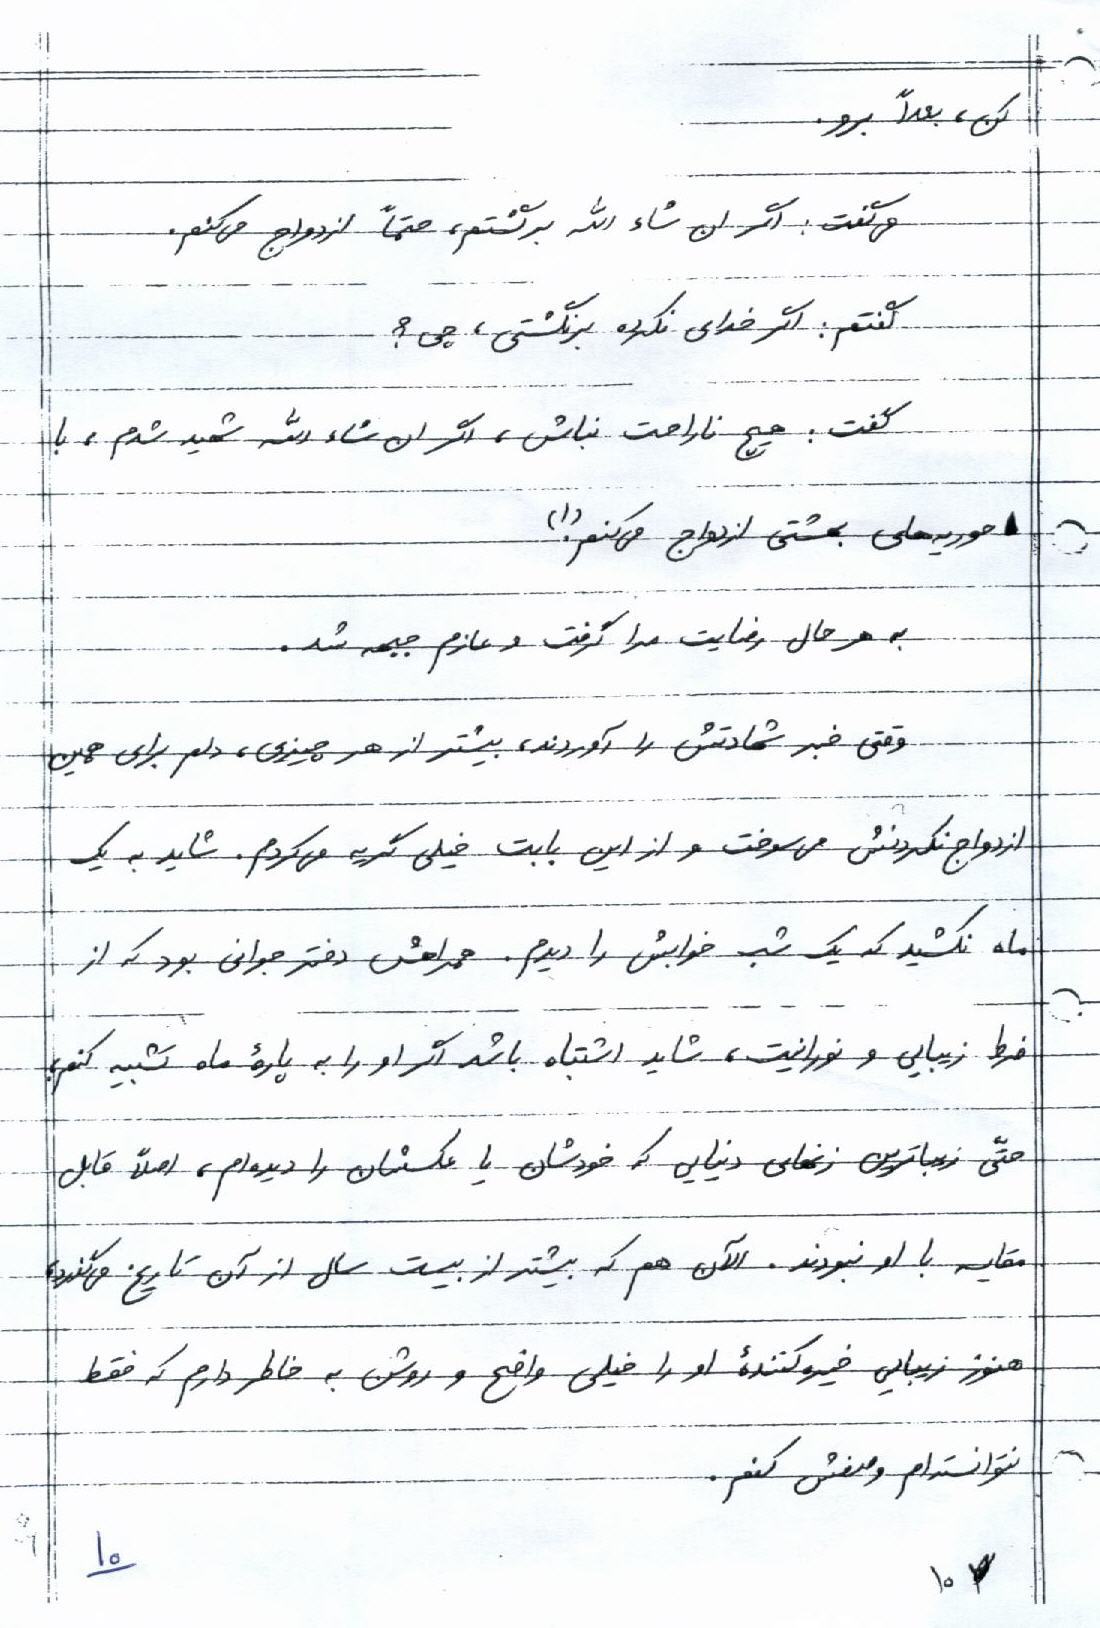 کن، بعداً برو.
می‌گفت: اگر ان شاء الله برگشتم، حتماً ازدواج می‌کنم.
گفتم: اگر خدای نکرده برنگشتی، چی؟
گفت: هیچ ناراحت نباش، اگر ان شاء الله شهید شدم، با
حوریه‌های بهشتی ازدواج می‌کنم!(۱)
به هر حال رضایت مرا گرفت و عازم جبهه شد.
وقتی خبر شهادتش را آوردند، بیشتر از هر چیزی، دلم برای همین
ازدواج نکردنش می‌سوخت و از این بابت خیلی گریه می‌کردم. شاید به یک
ماه نکشید که یک شب خوابش را دیدم. همراهش دختر جوانی بود که از
فرط زیبایی و نورانیت، شاید اشتباه باشد اگر او را به پارهٔ ماه تشبیه کنم؛
حتّی زیباترین زنهای دنیایی که خودشان یا عکسشان را دیده‌ام، اصلاً قابل
مقایسه با او نبودند. الآن هم که بیشتر از بیست سال از آن تاریخ می‌گذرد،
هنوز زیبایی خیره‌کنندهٔ او را خیلی واضح و روشن به خاطر دارم که فقط
نتوانسته‌ام وصفش کنم.
۱۰